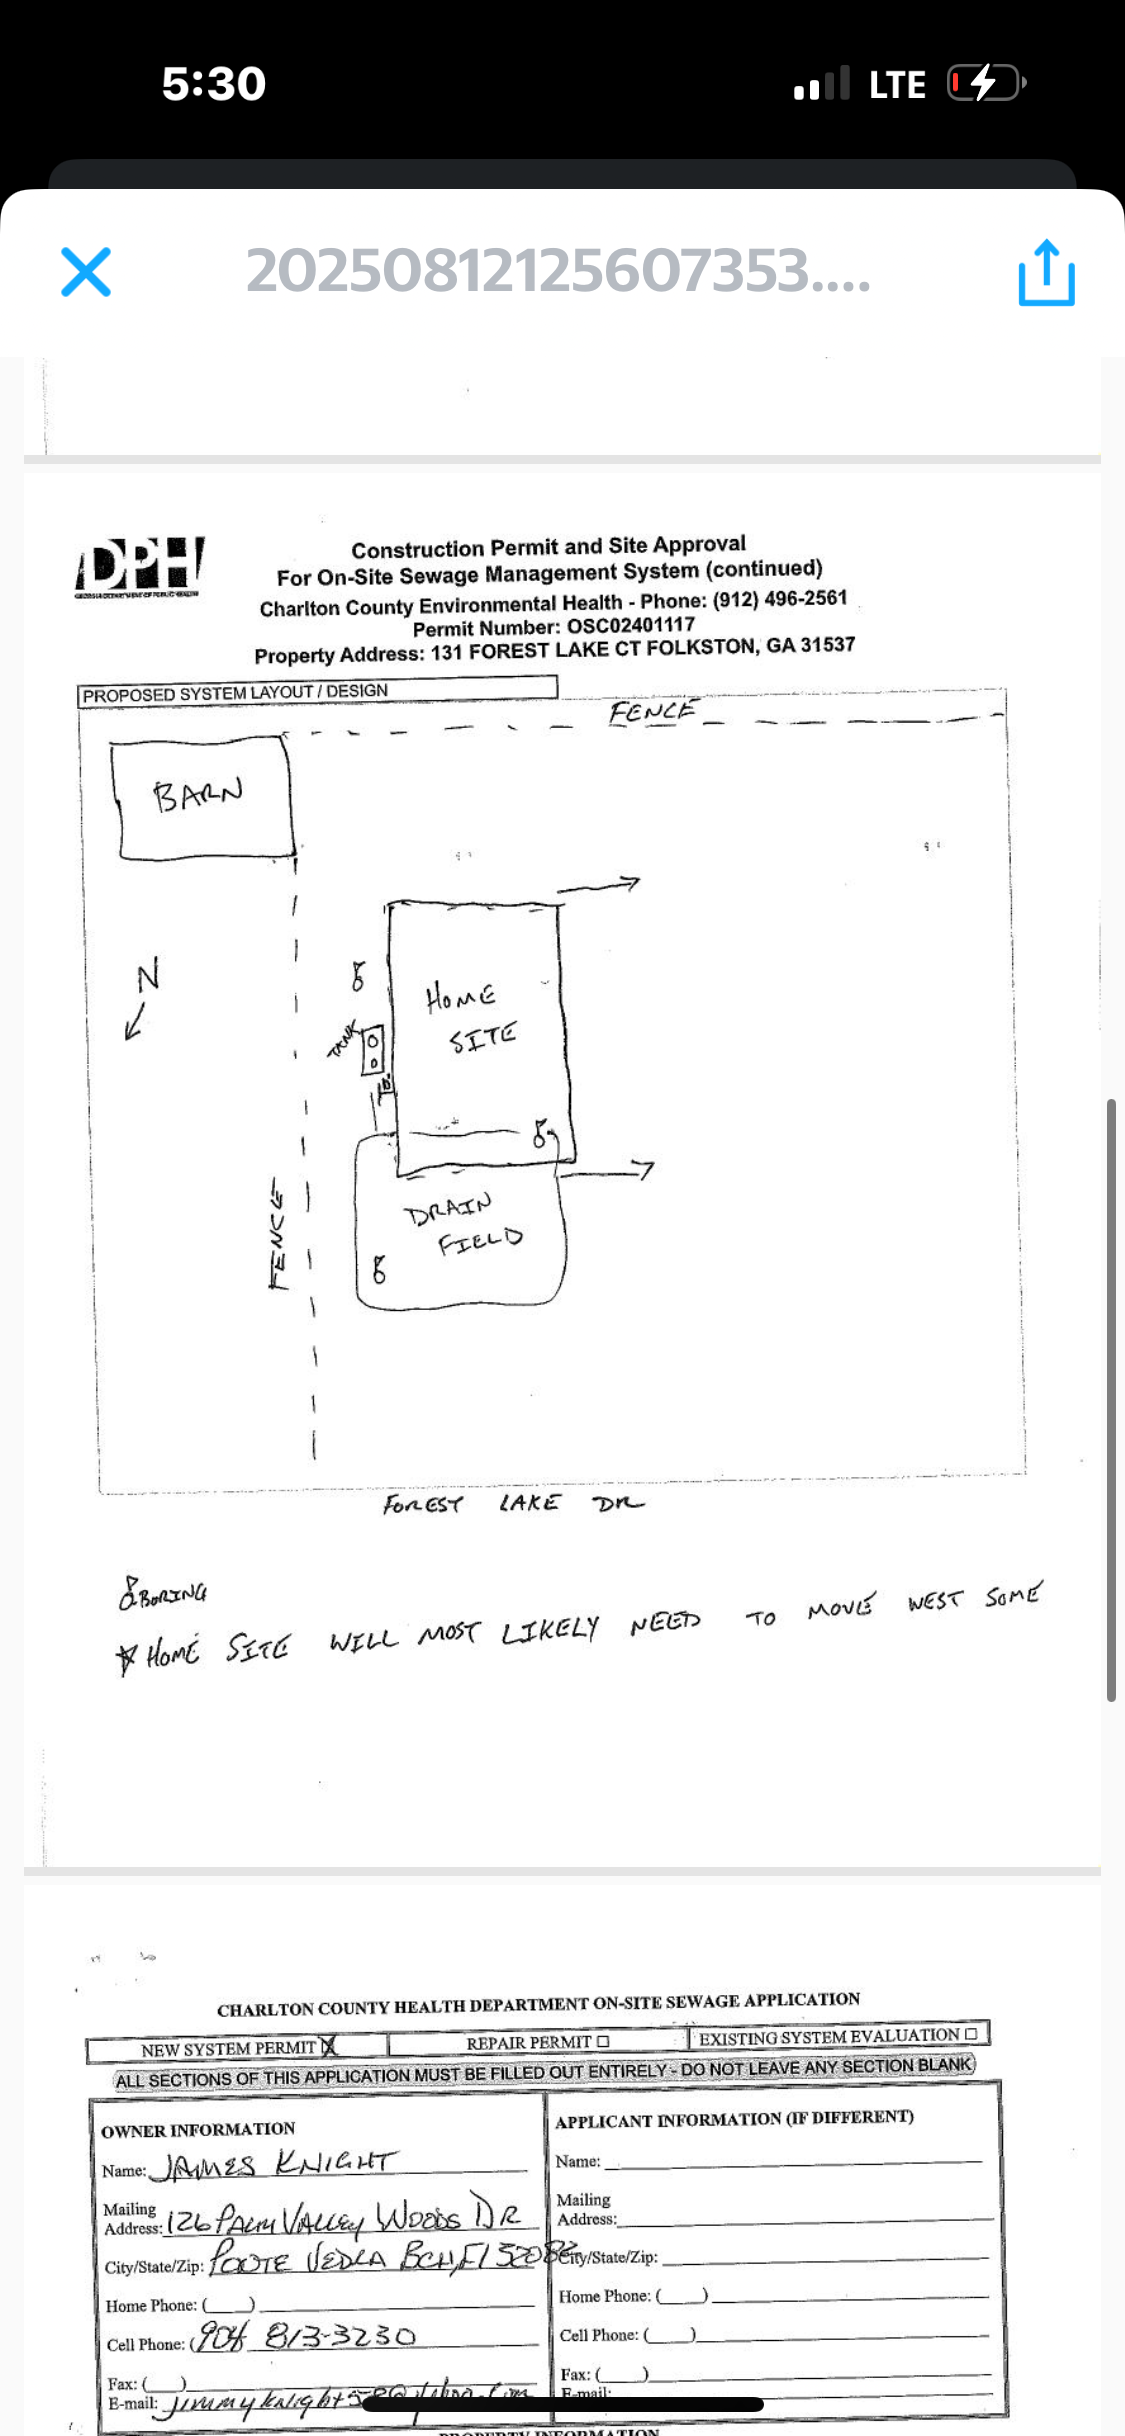 5:30
LTE
20250812125607353....
DPH
GEORGIA DEPARTMENT OF PUBLIC HEALTH
Construction Permit and Site Approval
For On-Site Sewage Management System (continued)
Charlton County Environmental Health - Phone: (912) 496-2561
Permit Number: OSC02401117
Property Address: 131 FOREST LAKE CT FOLKSTON, GA 31537
PROPOSED SYSTEM LAYOUT / DESIGN
FENCE
BARN
N
HOME
SITE
TANK
FENCE
DRAIN
FIELD
FOREST LAKE DR
BORING
HOME SITE WILL MOST LIKELY NEED TO MOVE WEST SOME
CHARLTON COUNTY HEALTH DEPARTMENT ON-SITE SEWAGE APPLICATION
NEW SYSTEM PERMIT REPAIR PERMIT EXISTING SYSTEM EVALUATION
ALL SECTIONS OF THIS APPLICATION MUST BE FILLED OUT ENTIRELY - DO NOT LEAVE ANY SECTION BLANK
OWNER INFORMATION
Name: JAMES KNIGHT
Mailing
Address: 126 PALM VALLEY WOODS DR
City/State/Zip: POOTE VEDRA BCH, Fl 32082
Home Phone: ( )
Cell Phone: (904 813-3230
Fax: ( )
E-mail:
APPLICANT INFORMATION (IF DIFFERENT)
Name:
Mailing
Address:
City/State/Zip:
Home Phone: ( )
Cell Phone: ( )
Fax: ( )
E-mail:
PROPERTY INFORMATION